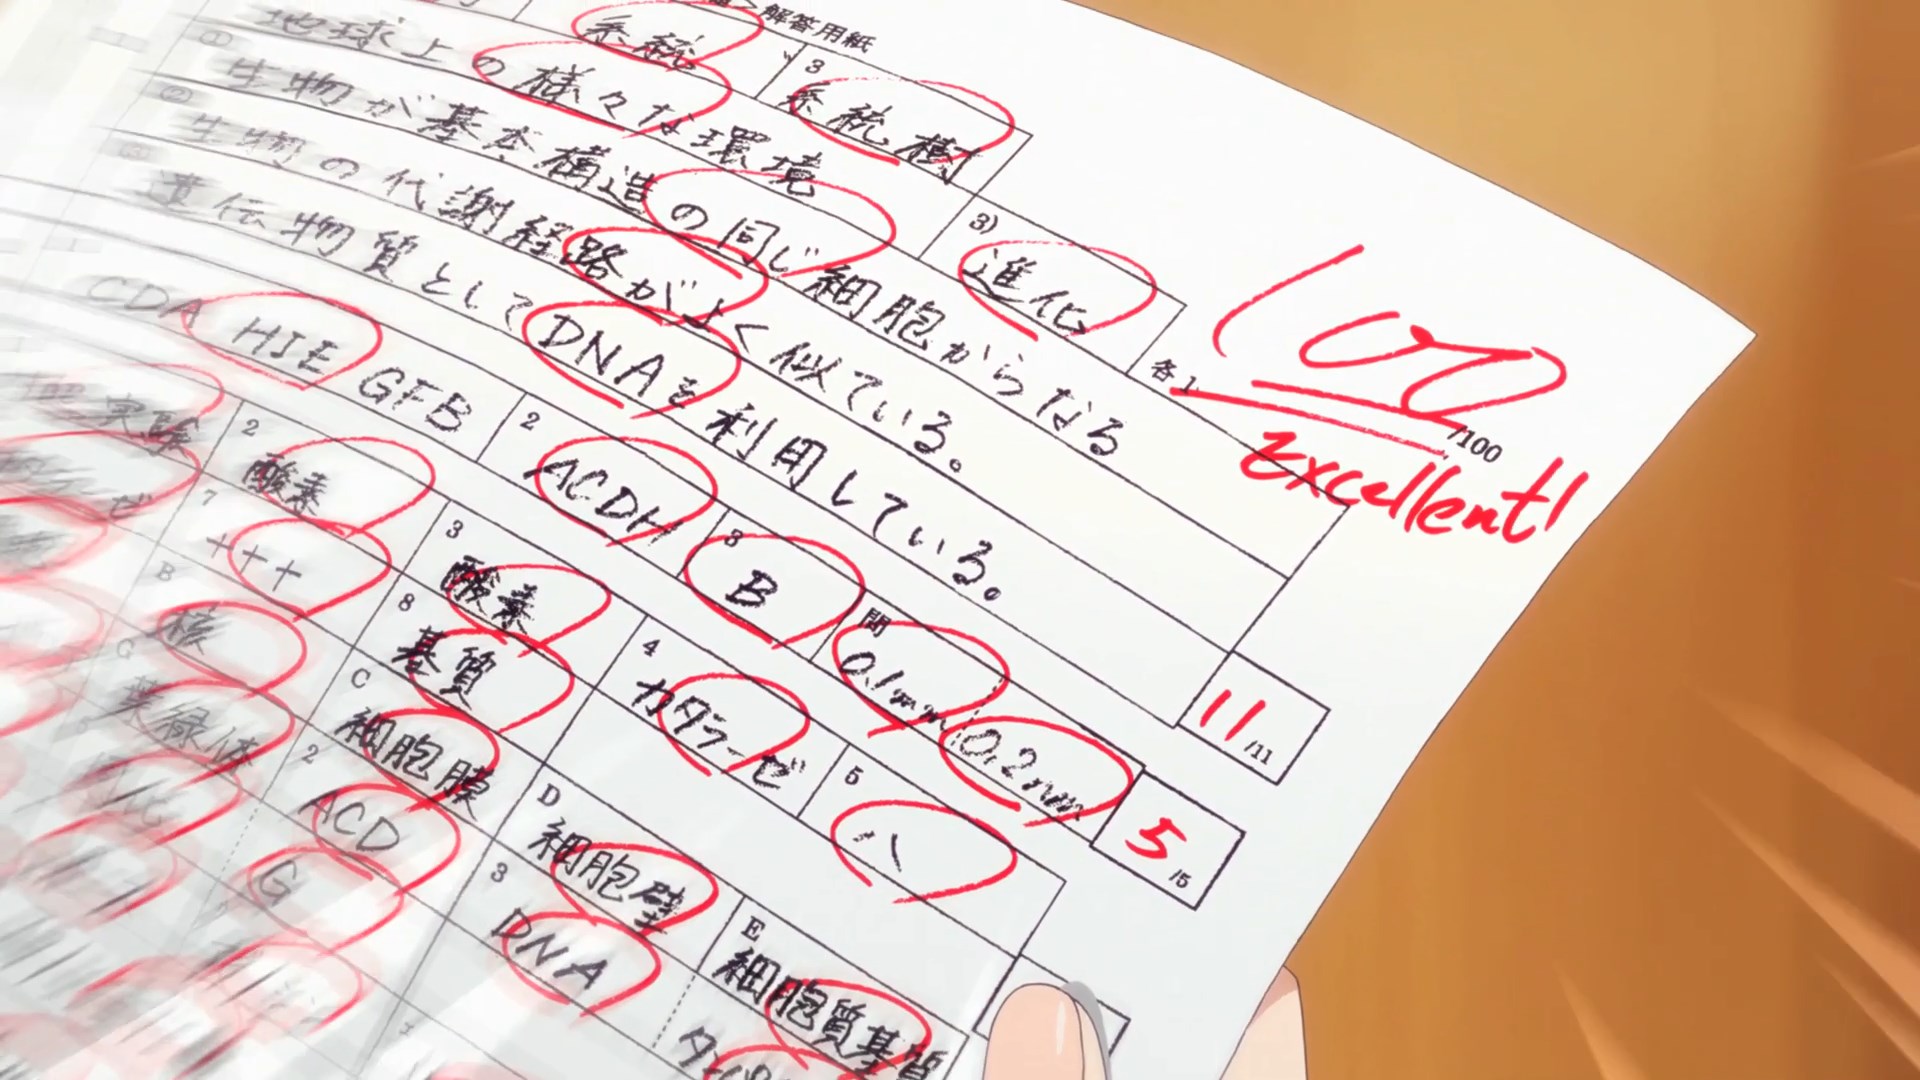 解答用紙
系統 3 系統樹
3) 進化
① 地球上の様々な環境
② 生物が基本構造の同じ細胞からなる
③ 生物の代謝経路がよく似ている。
遺伝物質としてDNAを利用している。
各1
100 /100
Excellent!
11 /11
CDA HIE GFB 2 ACDH 3 B 問 0.1mm 0.2nm
5 /5
実験 2 酸素 3 酸素 4 カタラーゼ 5 ハ
ゼ 7 +++ 8 基質
B 核 C 細胞膜 D 細胞壁 E 細胞質基質
G 葉緑体 2 ACD 3 DNA
G